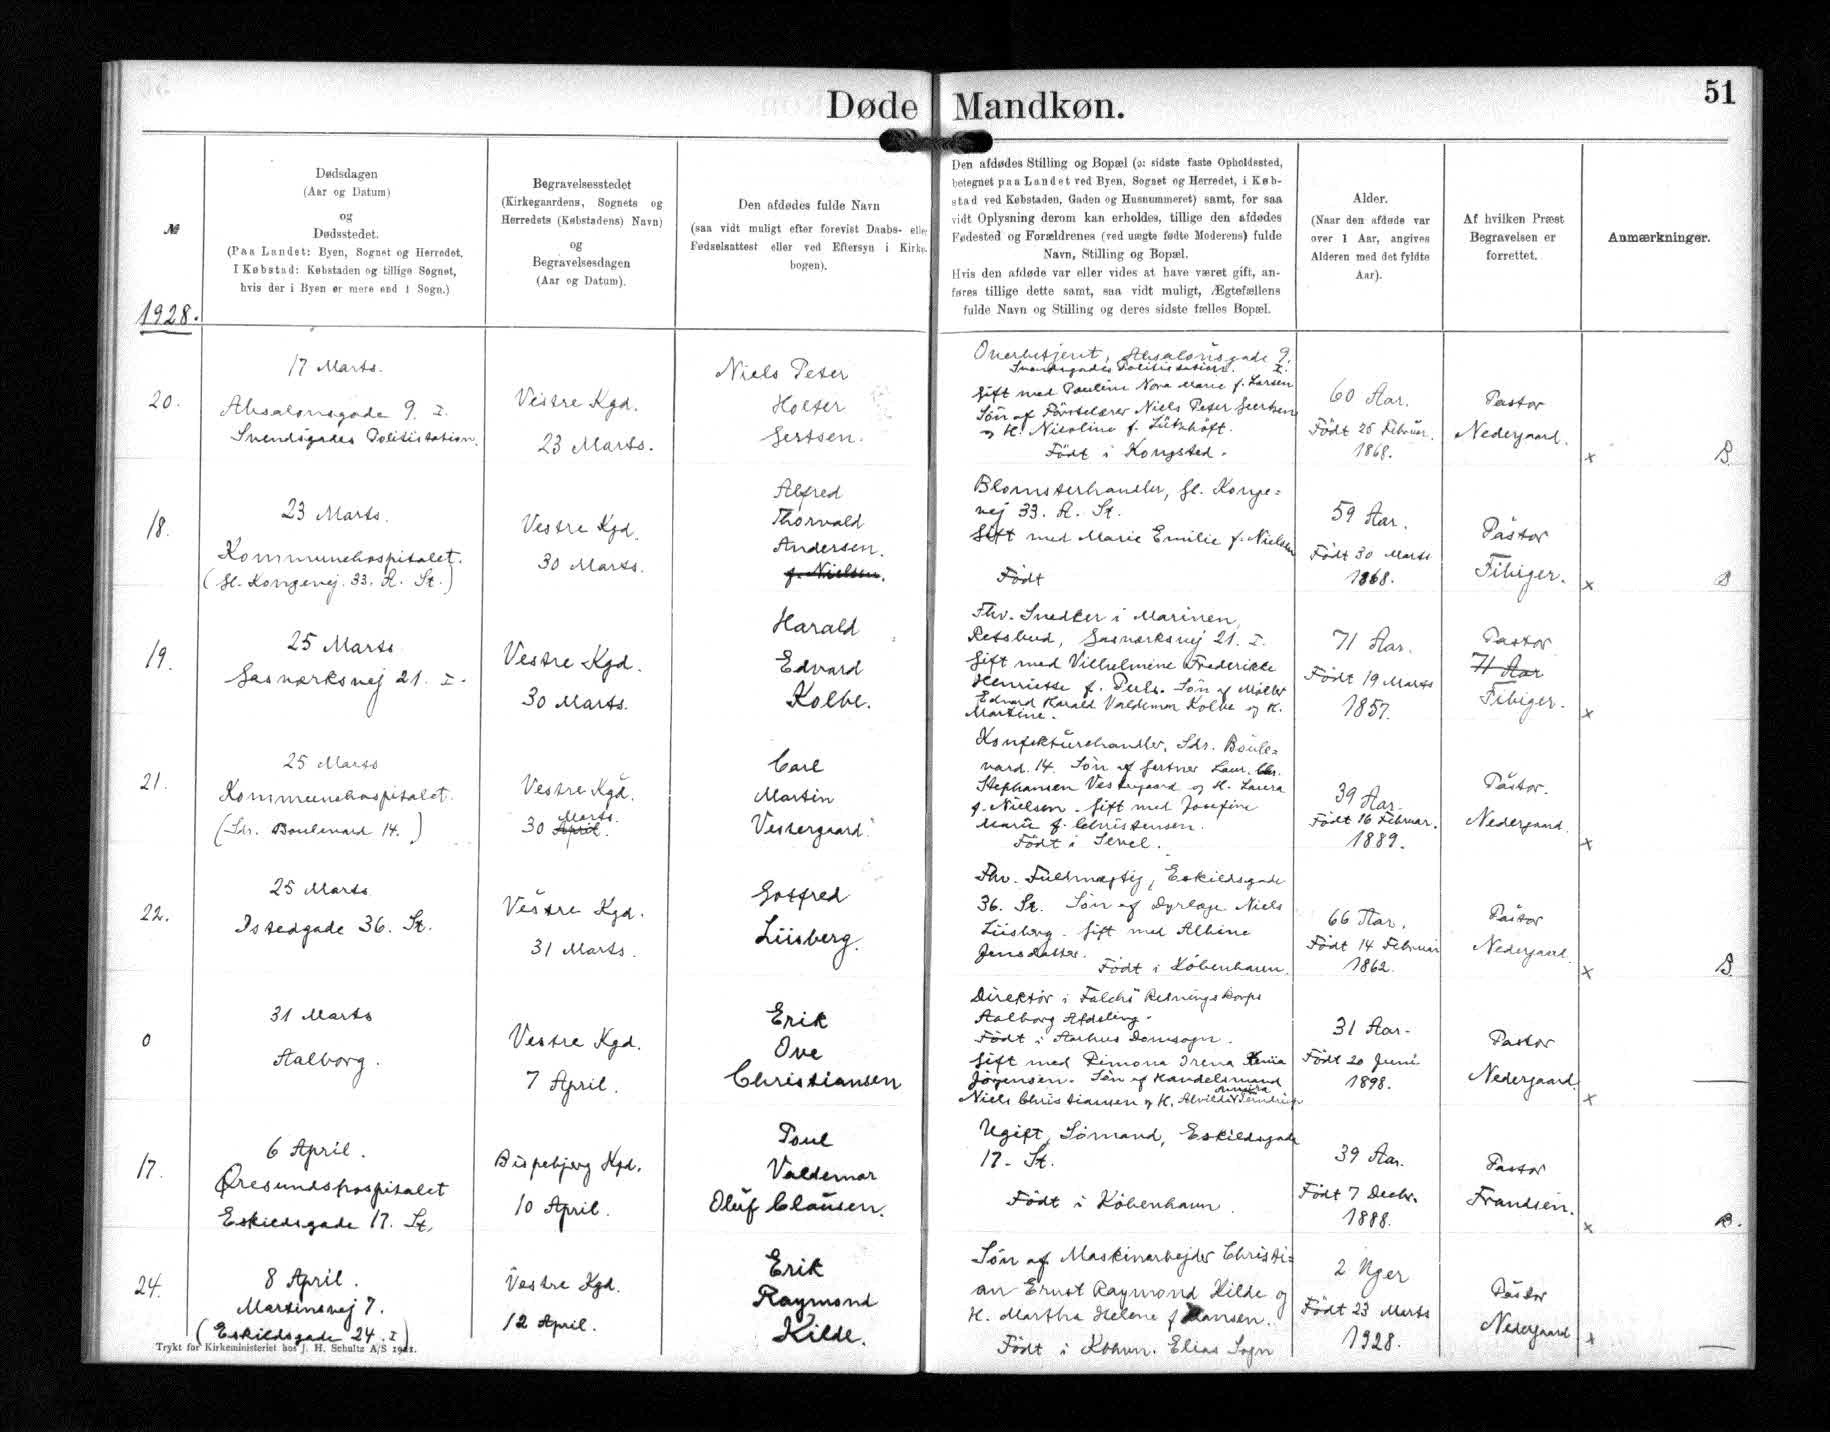 Døde Mandkøn.
51
№
1928.
Dødsdagen
(Aar og Datum)
og
Dødsstedet.
(Paa Landet: Byen, Sognet og Herredet.
I Købstad: Købstaden og tillige Sognet,
hvis der i Byen er mere end 1 Sogn.)
Begravelsesstedet
(Kirkegaardens, Sognets og
Herredets (Købstadens) Navn)
og
Begravelsesdagen
(Aar og Datum).
Den afdødes fulde Navn
(saa vidt muligt efter forevist Daabs- eller
Fødselsattest eller ved Eftersyn i Kirke-
bogen).
Den afdødes Stilling og Bopæl (ɔ: sidste faste Opholdssted,
betegnet paa Landet ved Byen, Sognet og Herredet, i Køb-
stad ved Købstaden, Gaden og Husnummeret) samt, for saa
vidt Oplysning derom kan erholdes, tillige den afdødes
Fødested og Forældrenes (ved uægte fødte Moderens) fulde
Navn, Stilling og Bopæl.
Hvis den afdøde var eller vides at have været gift, an-
føres tillige dette samt, saa vidt muligt, Ægtefællens
fulde Navn og Stilling og deres sidste fælles Bopæl.
Alder.
(Naar den afdøde var
over 1 Aar, angives
Alderen med det fyldte
Aar).
Af hvilken Præst
Begravelsen er
forrettet.
Anmærkninger.
20.
17 Marts.
Absalonsgade 9. I.
Svendsgades Politistation.
Vestre Kgd.
23 Marts.
Niels Peter
Holter
Gertsen.
Overbetjent, Absalonsgade 9. I.
Svendsgades Politistation.
Gift med Pauline Nora Marie f. Larsen
Søn af Førstelærer Niels Peter Geertsen
og H. Nicoline f. Lützhøft.
Født i Kongsted.
60 Aar.
Født 26 Februar.
1868.
Pastor
Nedergaard.
x
B.
18.
23 Marts.
Kommunehospitalet.
(Gl. Kongevej. 33. A. St.)
Vestre Kgd.
30 Marts.
Alfred
Thorvald
Andersen.
f. Nielsen.
Blomsterhandler, Gl. Konge=
vej 33. A. St.
Gift med Marie Emilie f. Nielsen
Født
59 Aar.
Født 30 Marts
1868.
Pastor
Fibiger.
x
B
19.
25 Marts
Gasværksvej 21. I.
Vestre Kgd.
30 Marts.
Harald
Edvard
Kolbe.
Fhv. Snedker i Marinen,
Retsbud, Gasværksvej 21. I.
Gift med Vilhelmine Frederikke
Henriette f. Puls. Søn af Møller
Edvard Harald Valdemar Kolbe og H.
Martine.
71 Aar.
Født 19 Marts
1857.
Pastor
71 Aar
Fibiger.
x
21.
25 Marts
Kommunehospitalet.
(Sdr. Boulevard 14.)
Vestre Kgd.
Marts.
30 April.
Carl
Martin
Vestergaard.
Konfekturehandler, Sdr. Boule=
vard. 14. Søn af Gartner Laur. Chr.
Stephansen Vestergaard og H. Laura
f. Nielsen. Gift med Josefine
Marie f. Christensen.
Født i Sevel.
39 Aar.
Født 16 Februar.
1889.
Pastor.
Nedergaard.
x
22.
25 Marts
Istedgade 36. St.
Vestre Kgd.
31 Marts.
Gotfred
Liisberg.
Fhv. Fuldmægtig, Eskildsgade
36. St. Søn af Dyrlæge Niels
Liisberg. Gift med Albine
Jensdatter.
Født i København.
66 Aar.
Født 14 Februar
1862.
Pastor
Nedergaard.
x
B.
0
31 Marts
Aalborg.
Vestre Kgd.
7 April.
Erik
Ove
Christiansen
Direktør i Falcks Redningskorps
Aalborg Afdeling.
Født i Aarhus Domsogn.
Gift med Ramona Irena
Jørgensen. Søn af Handelsmand
Niels Christiansen og H. Alvilda
31 Aar.
Født 20 Juni
1898.
Pastor
Nedergaard.
x
17.
6 April.
Øresundshospitalet
Eskildsgade 17. St.
Bispebjerg Kgd.
10 April.
Poul
Valdemar
Oluf Clausen.
Ugift, Sømand, Eskildsgade
17. St.
Født i København.
39 Aar.
Født 7 Decbr.
1888.
Pastor
Frandsen.
x
B.
24.
8 April.
Martinsvej 7.
(Eskildsgade 24. I)
Vestre Kgd.
12 April.
Erik
Raymond
Kilde.
Søn af Maskinarbejder Christi=
an Ernst Raymond Kilde og
H. Martha Helene f. Hansen.
Født i Kbhvn. Elias Sogn
2 Uger
Født 23 Marts
1928.
Pastor
Nedergaard
x
Trykt for Kirkeministeriet hos J. H. Schultz A/S 1921.